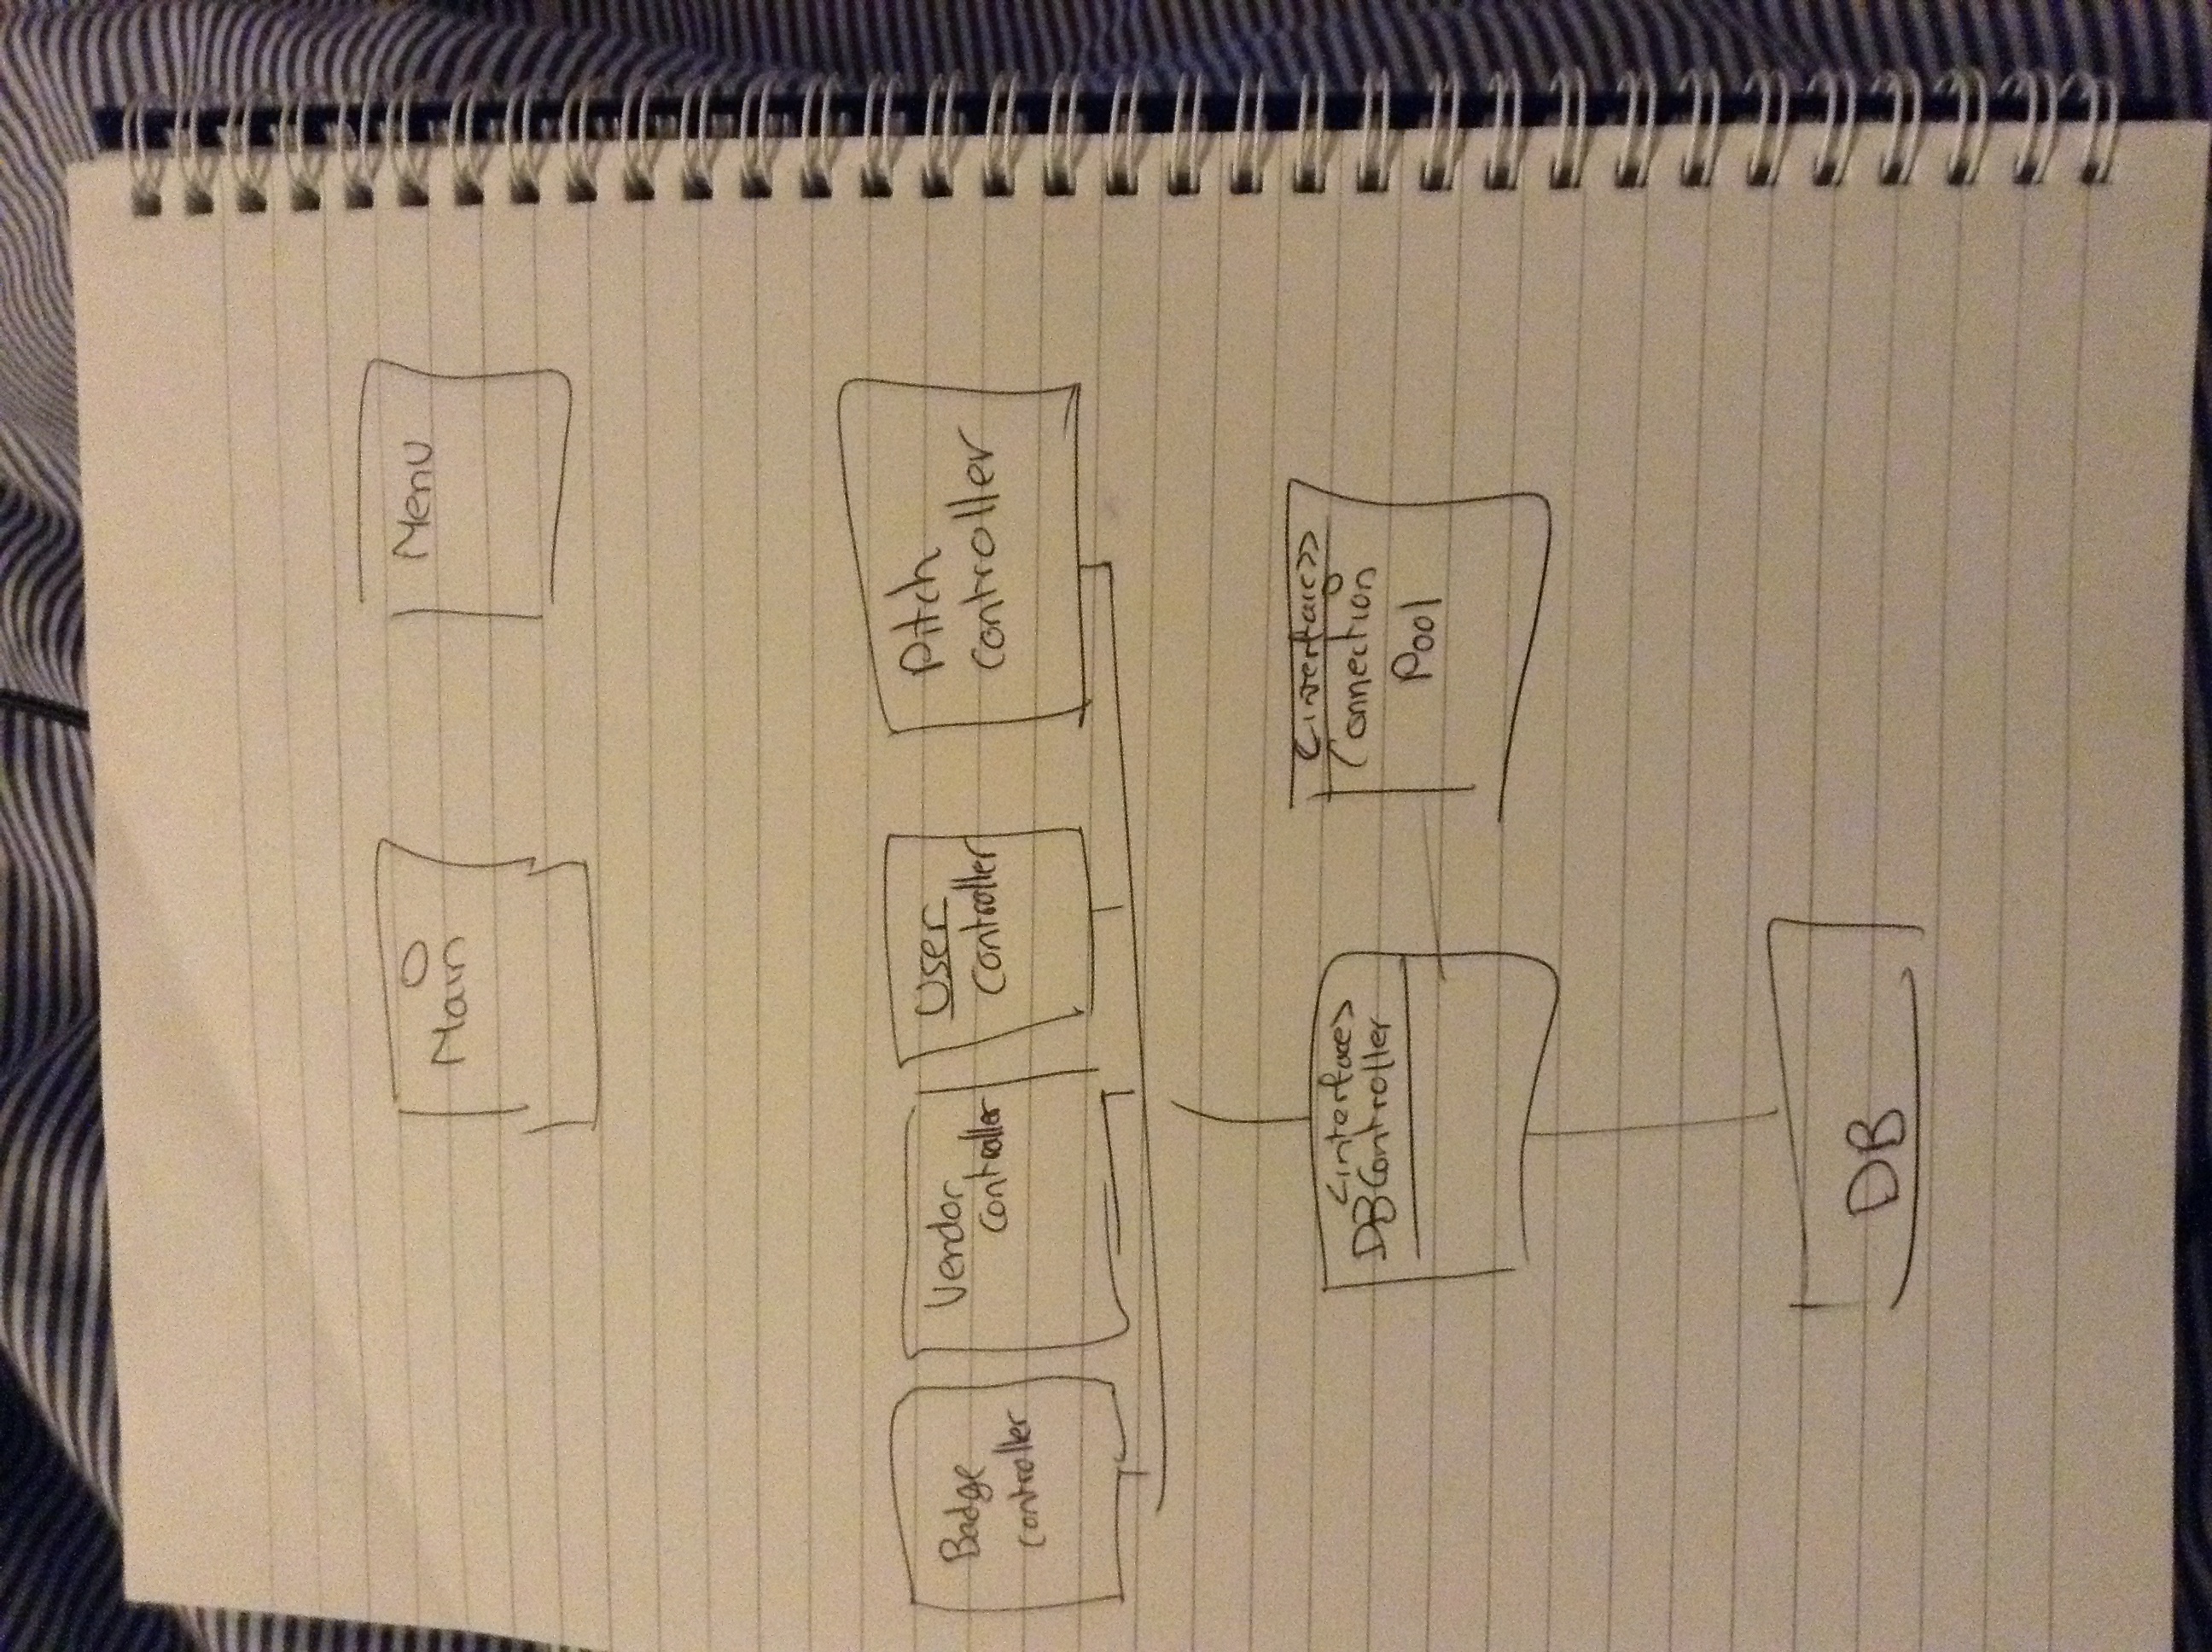 Main
Menu
Badge
controller
Vendor
controller
User
controller
Pitch
controller
<interface>
DBController
<interface>>
Connection
Pool
DB